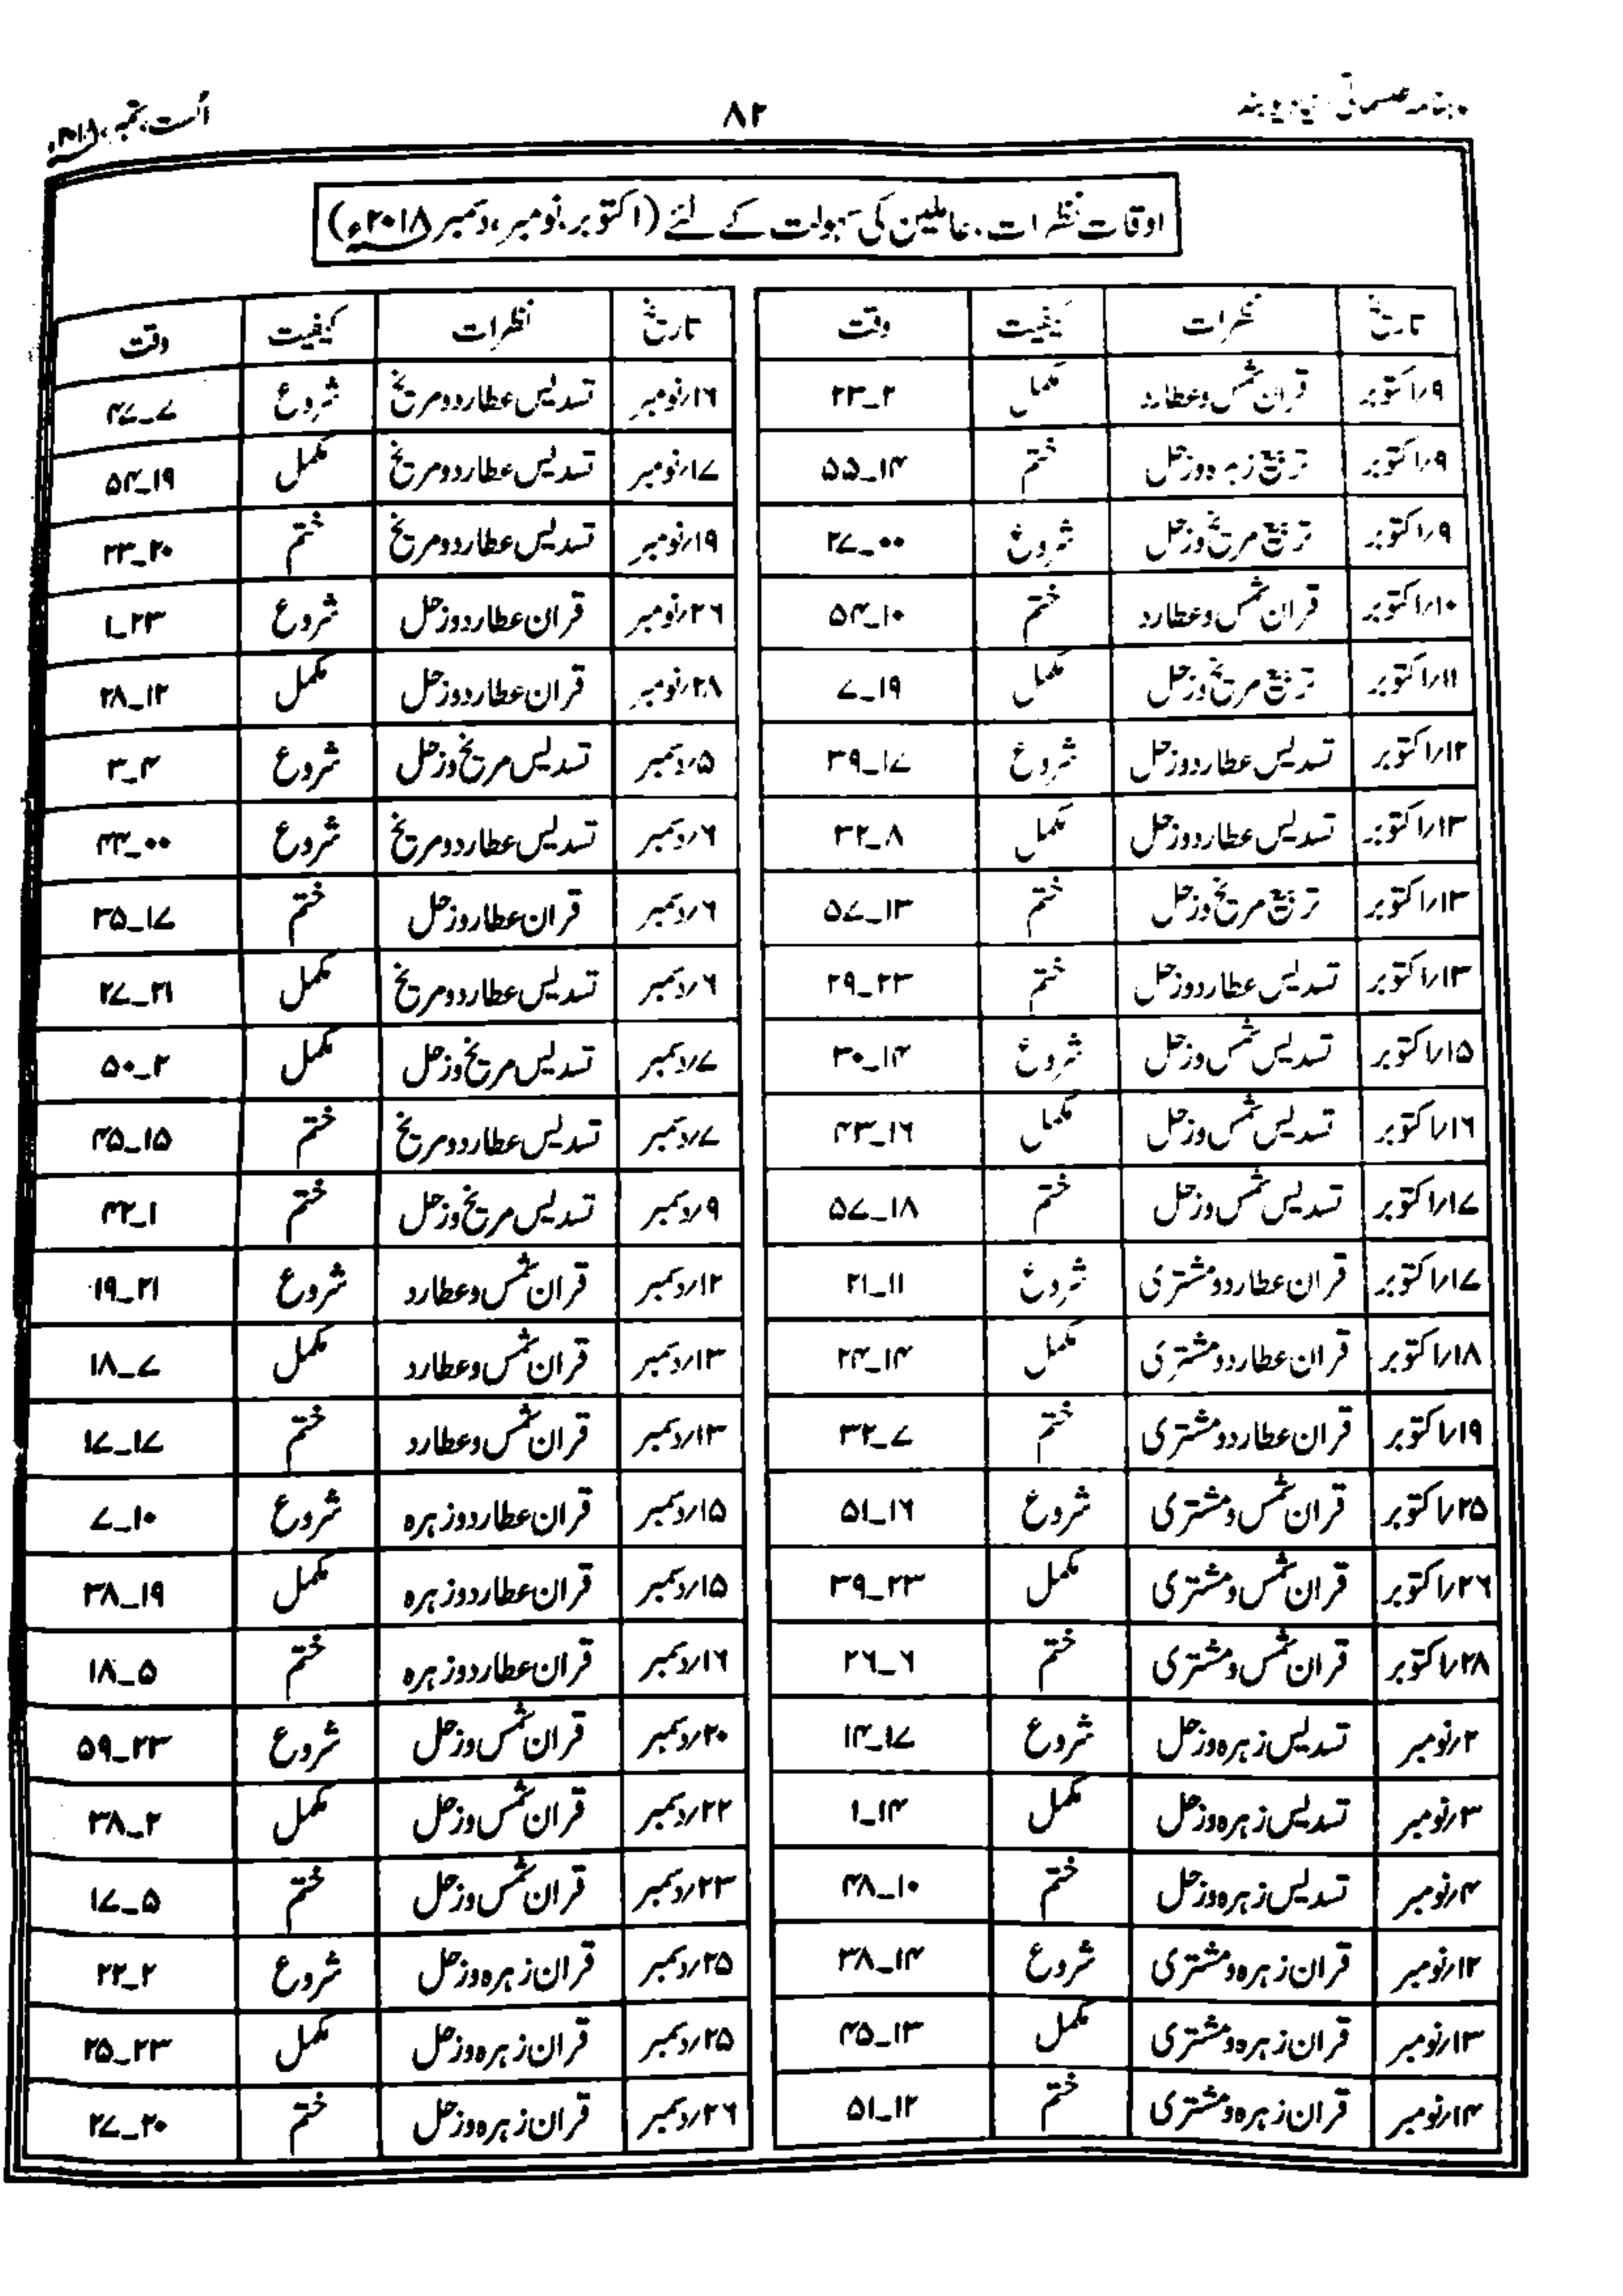 ماہنامہ طلسماتی دنیا، دیوبند
۸۲
اگست، ستمبر، ۲۰۱۸ء
اوقات نظرات، عاملین کی سہولت کے لئے (اکتوبر، نومبر، دسمبر ۲۰۱۸ء)
تاریخ نظرات کیفیت وقت
۹/اکتوبر قران شمس وعطارد مکمل ۲_۲۳
۹/اکتوبر تربیع زہرہ وزحل ختم ۱۴_۵۵
۹/اکتوبر تربیع مریخ وزحل شروع ۰۰_۲۷
۱۰/اکتوبر قران شمس وعطارد ختم ۱۰_۵۴
۱۱/اکتوبر تربیع مریخ وزحل مکمل ۱۹_۷
۱۲/اکتوبر تسدیس عطارد وزحل شروع ۱۷_۳۹
۱۳/اکتوبر تسدیس عطارد وزحل مکمل ۸_۳۲
۱۳/اکتوبر تربیع مریخ وزحل ختم ۱۳_۵۷
۱۳/اکتوبر تسدیس عطارد وزحل ختم ۲۳_۲۹
۱۵/اکتوبر تسدیس شمس وزحل شروع ۱۴_۳۰
۱۶/اکتوبر تسدیس شمس وزحل مکمل ۱۶_۴۳
۱۷/اکتوبر تسدیس شمس وزحل ختم ۱۸_۵۷
۱۷/اکتوبر قران عطارد ومشتری شروع ۱۱_۲۱
۱۸/اکتوبر قران عطارد ومشتری مکمل ۱۴_۲۴
۱۹/اکتوبر قران عطارد ومشتری ختم ۷_۳۲
۲۵/اکتوبر قران شمس ومشتری شروع ۱۶_۵۱
۲۶/اکتوبر قران شمس ومشتری مکمل ۲۳_۳۹
۲۸/اکتوبر قران شمس ومشتری ختم ۶_۲۶
۲/نومبر تسدیس زہرہ وزحل شروع ۱۷_۱۴
۳/نومبر تسدیس زہرہ وزحل مکمل ۱۴_۱
۴/نومبر تسدیس زہرہ وزحل ختم ۱۰_۴۸
۱۲/نومبر قران زہرہ ومشتری شروع ۱۴_۳۸
۱۳/نومبر قران زہرہ ومشتری مکمل ۱۳_۴۵
۱۴/نومبر قران زہرہ ومشتری ختم ۱۲_۵۱
تاریخ نظرات کیفیت وقت
۱۶/نومبر تسدیس عطارد ومریخ شروع ۷_۴۷
۱۷/نومبر تسدیس عطارد ومریخ مکمل ۱۹_۵۴
۱۹/نومبر تسدیس عطارد ومریخ ختم ۲۰_۲۳
۲۶/نومبر قران عطارد وزحل شروع ۲۳_۱
۲۸/نومبر قران عطارد وزحل مکمل ۱۲_۲۸
۵/دسمبر تسدیس مریخ وزحل شروع ۴_۳
۶/دسمبر تسدیس عطارد ومریخ شروع ۰۰_۴۴
۶/دسمبر قران عطار وزحل ختم ۱۷_۳۵
۶/دسمبر تسدیس عطارد ومریخ مکمل ۲۱_۲۷
۷/دسمبر تسدیس مریخ وزحل مکمل ۲_۵۰
۷/دسمبر تسدیس عطارد ومریخ ختم ۱۵_۴۵
۹/دسمبر تسدیس مریخ وزحل ختم ۱_۴۲
۱۲/دسمبر قران شمس وعطارد شروع ۲۱_۱۹
۱۳/دسمبر قران شمس وعطارد مکمل ۷_۱۸
۱۳/دسمبر قران شمس وعطارد ختم ۱۷_۱۷
۱۵/دسمبر قران عطارد وزہرہ شروع ۱۰_۷
۱۵/دسمبر قران عطارد وزہرہ مکمل ۱۹_۳۸
۱۶/دسمبر قران عطارد وزہرہ ختم ۵_۱۸
۲۰/دسمبر قران شمس وزحل شروع ۲۳_۵۹
۲۲/دسمبر قران شمس وزحل مکمل ۲_۳۸
۲۳/دسمبر قران شمس وزحل ختم ۵_۱۷
۲۵/دسمبر قران زہرہ وزحل شروع ۲_۲۲
۲۵/دسمبر قران زہرہ وزحل مکمل ۲۳_۲۵
۲۶/دسمبر قران زہرہ وزحل ختم ۲۰_۲۷